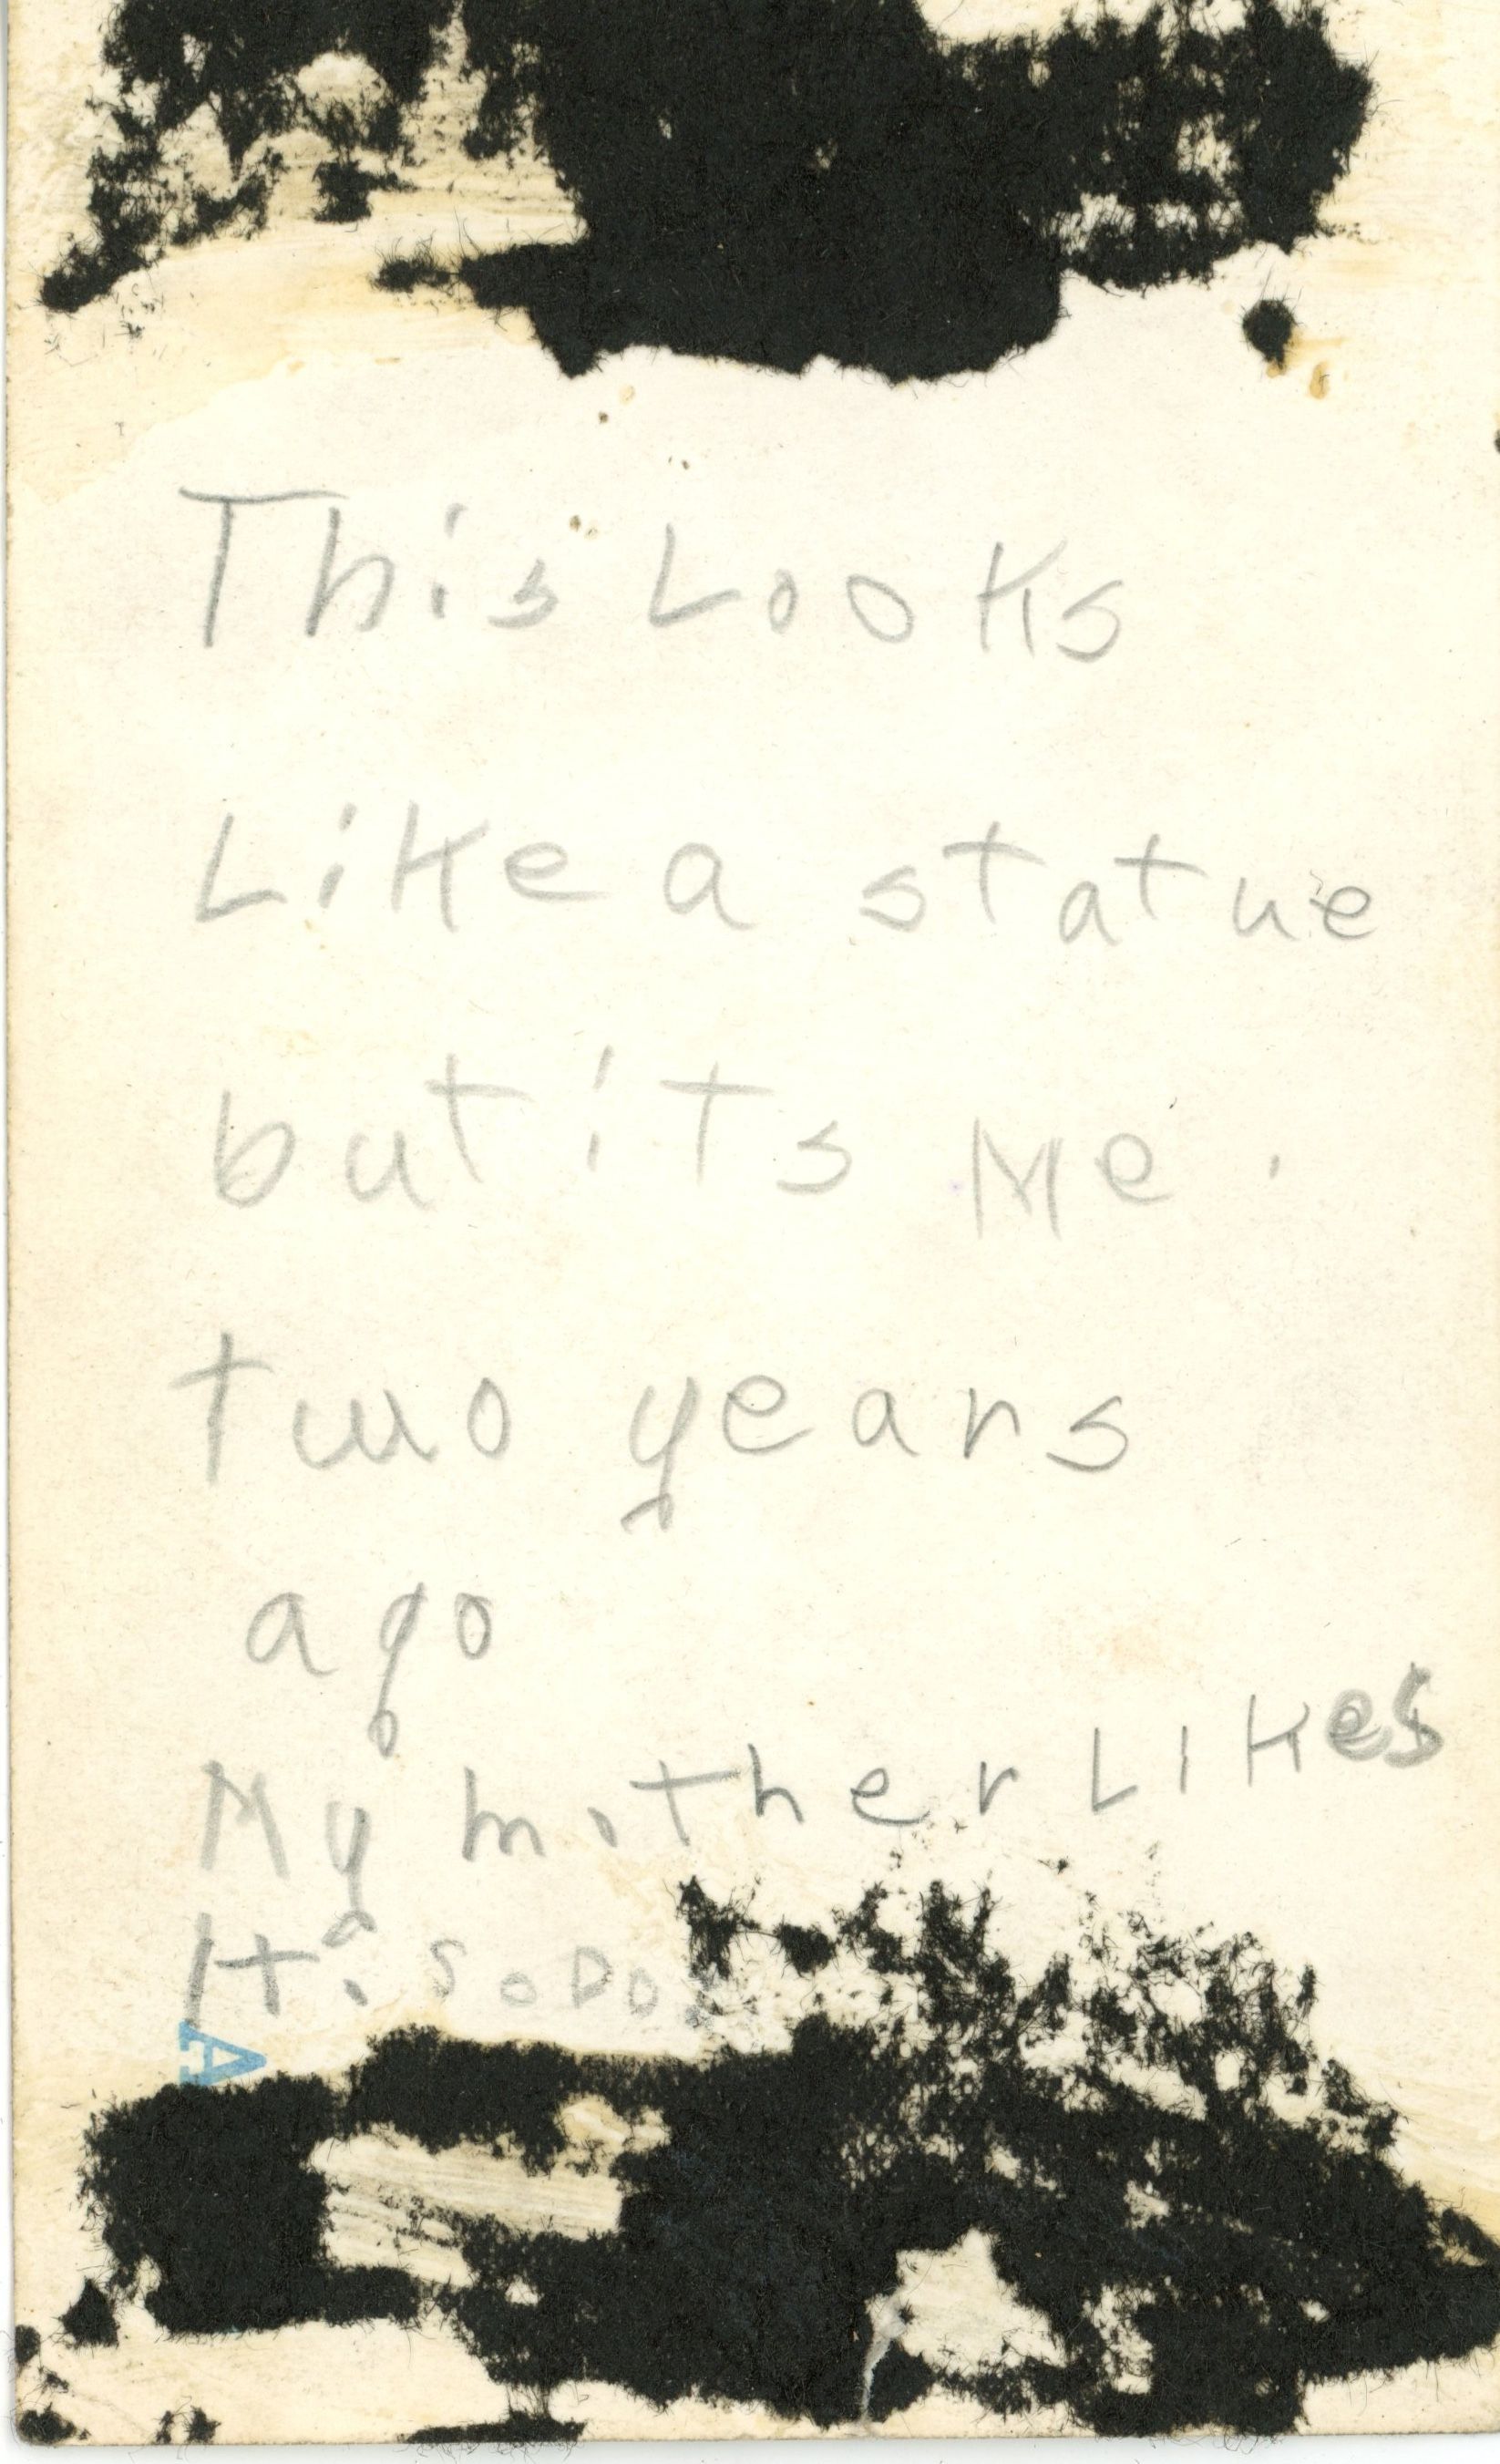 This Looks
Like a statue
but its Me.
two years
ago
My mother Likes
It. so Do
A